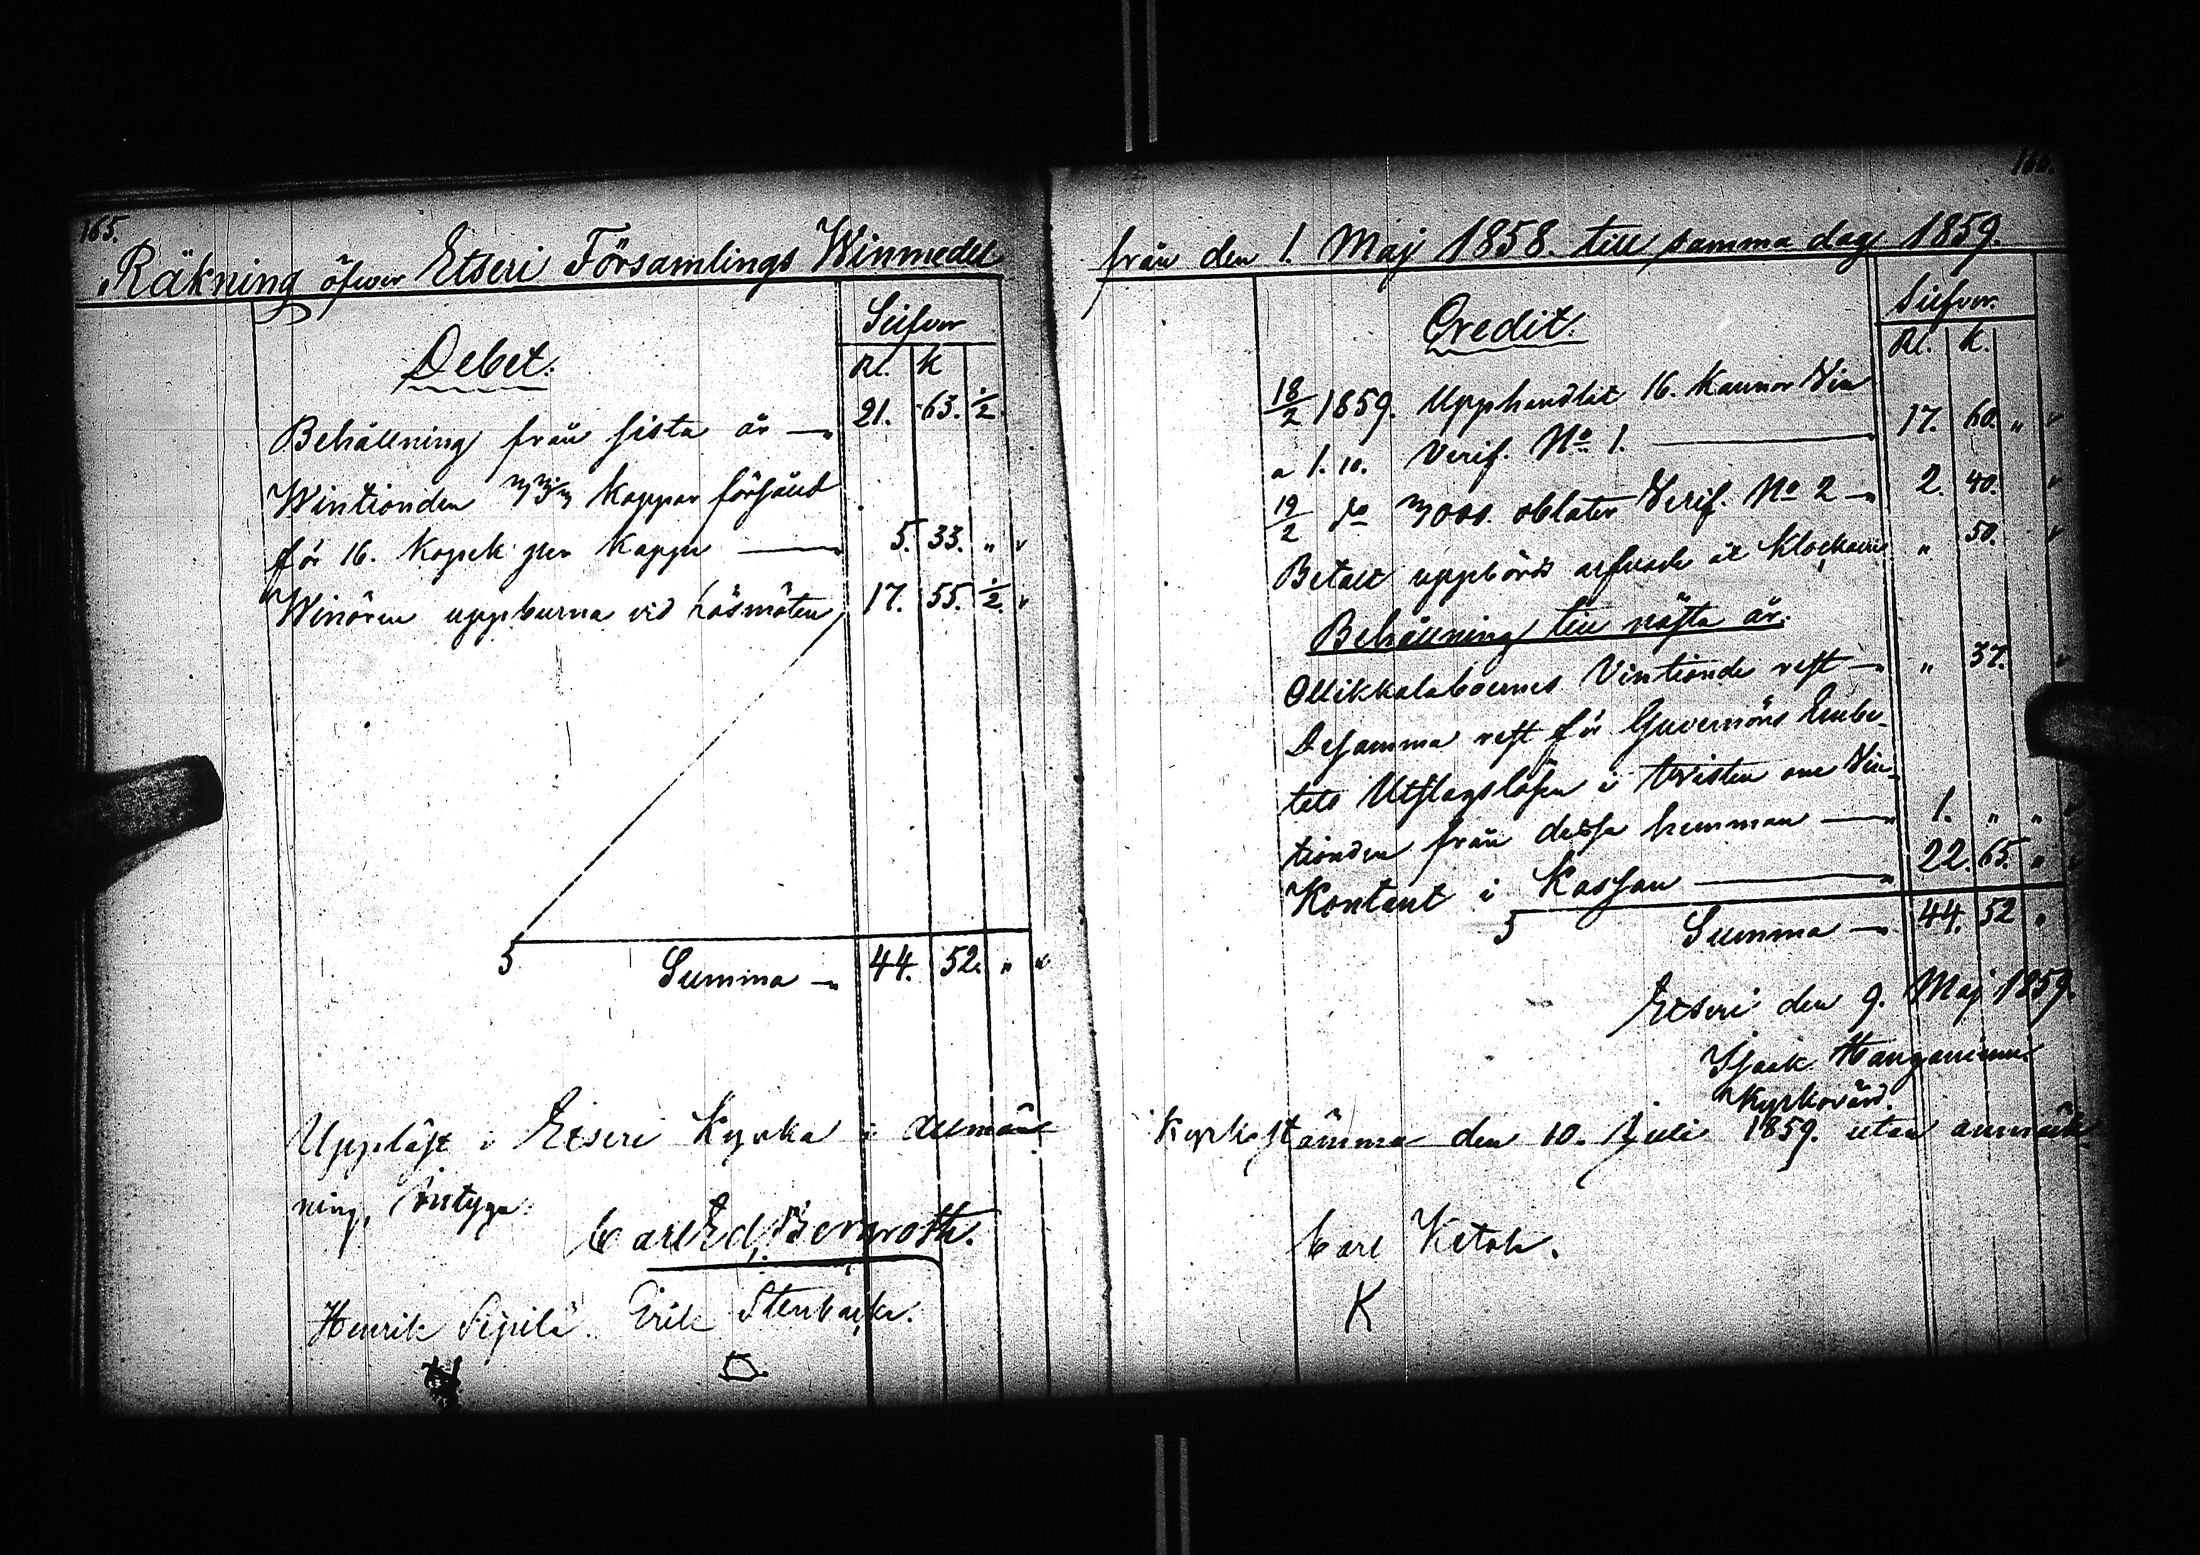 165.
Räkning öfver Etseri Församlings Winmedel
Silfver
Debet.
Rl. k
Behållning från sista år — 21. 63. ½.
Wintionden 33⅓ kappar försåld
för 16. kopek per kappe — 5. 33. „
Winören uppburna vid Läsmöten 17. 55. ½.
Summa — 44. 52. „
Uppläst i Etseri Kyrka i allmän
ning, betyga:
Carl Ed. Bergroth.
Henrik Sipilä. Erik Stenbacka.
166.
från den 1. Maj 1858. till samma dag 1859.
Silfver.
Credit.
Rl. k.
18/2 1859. Upphandlat 16. kannor Win
a 1. 10. Verif. No 1. — 17. 60. „
19/2 do 3000. oblater Verif. No 2 — 2. 40.
Betalt uppbörds arfvode åt klockaren „ 50.
Behållning till näste år.
Ollikkalaboernes Vintionde rest — „ 37.
Desamma rest för Guvernörs Embe-
tets Utslagslösen i tvisten om Vin-
tionden från dessa hemman — 1. „ „
Kontant i Kassan — 22. 65. „
Summa — 44. 52 „
Etseri den 9. Maj 1859.
Isaak
Kyrkovärd.
Kyrkostämma den 10. Juli 1859. utan anmärk-
Carl Ketola.
K